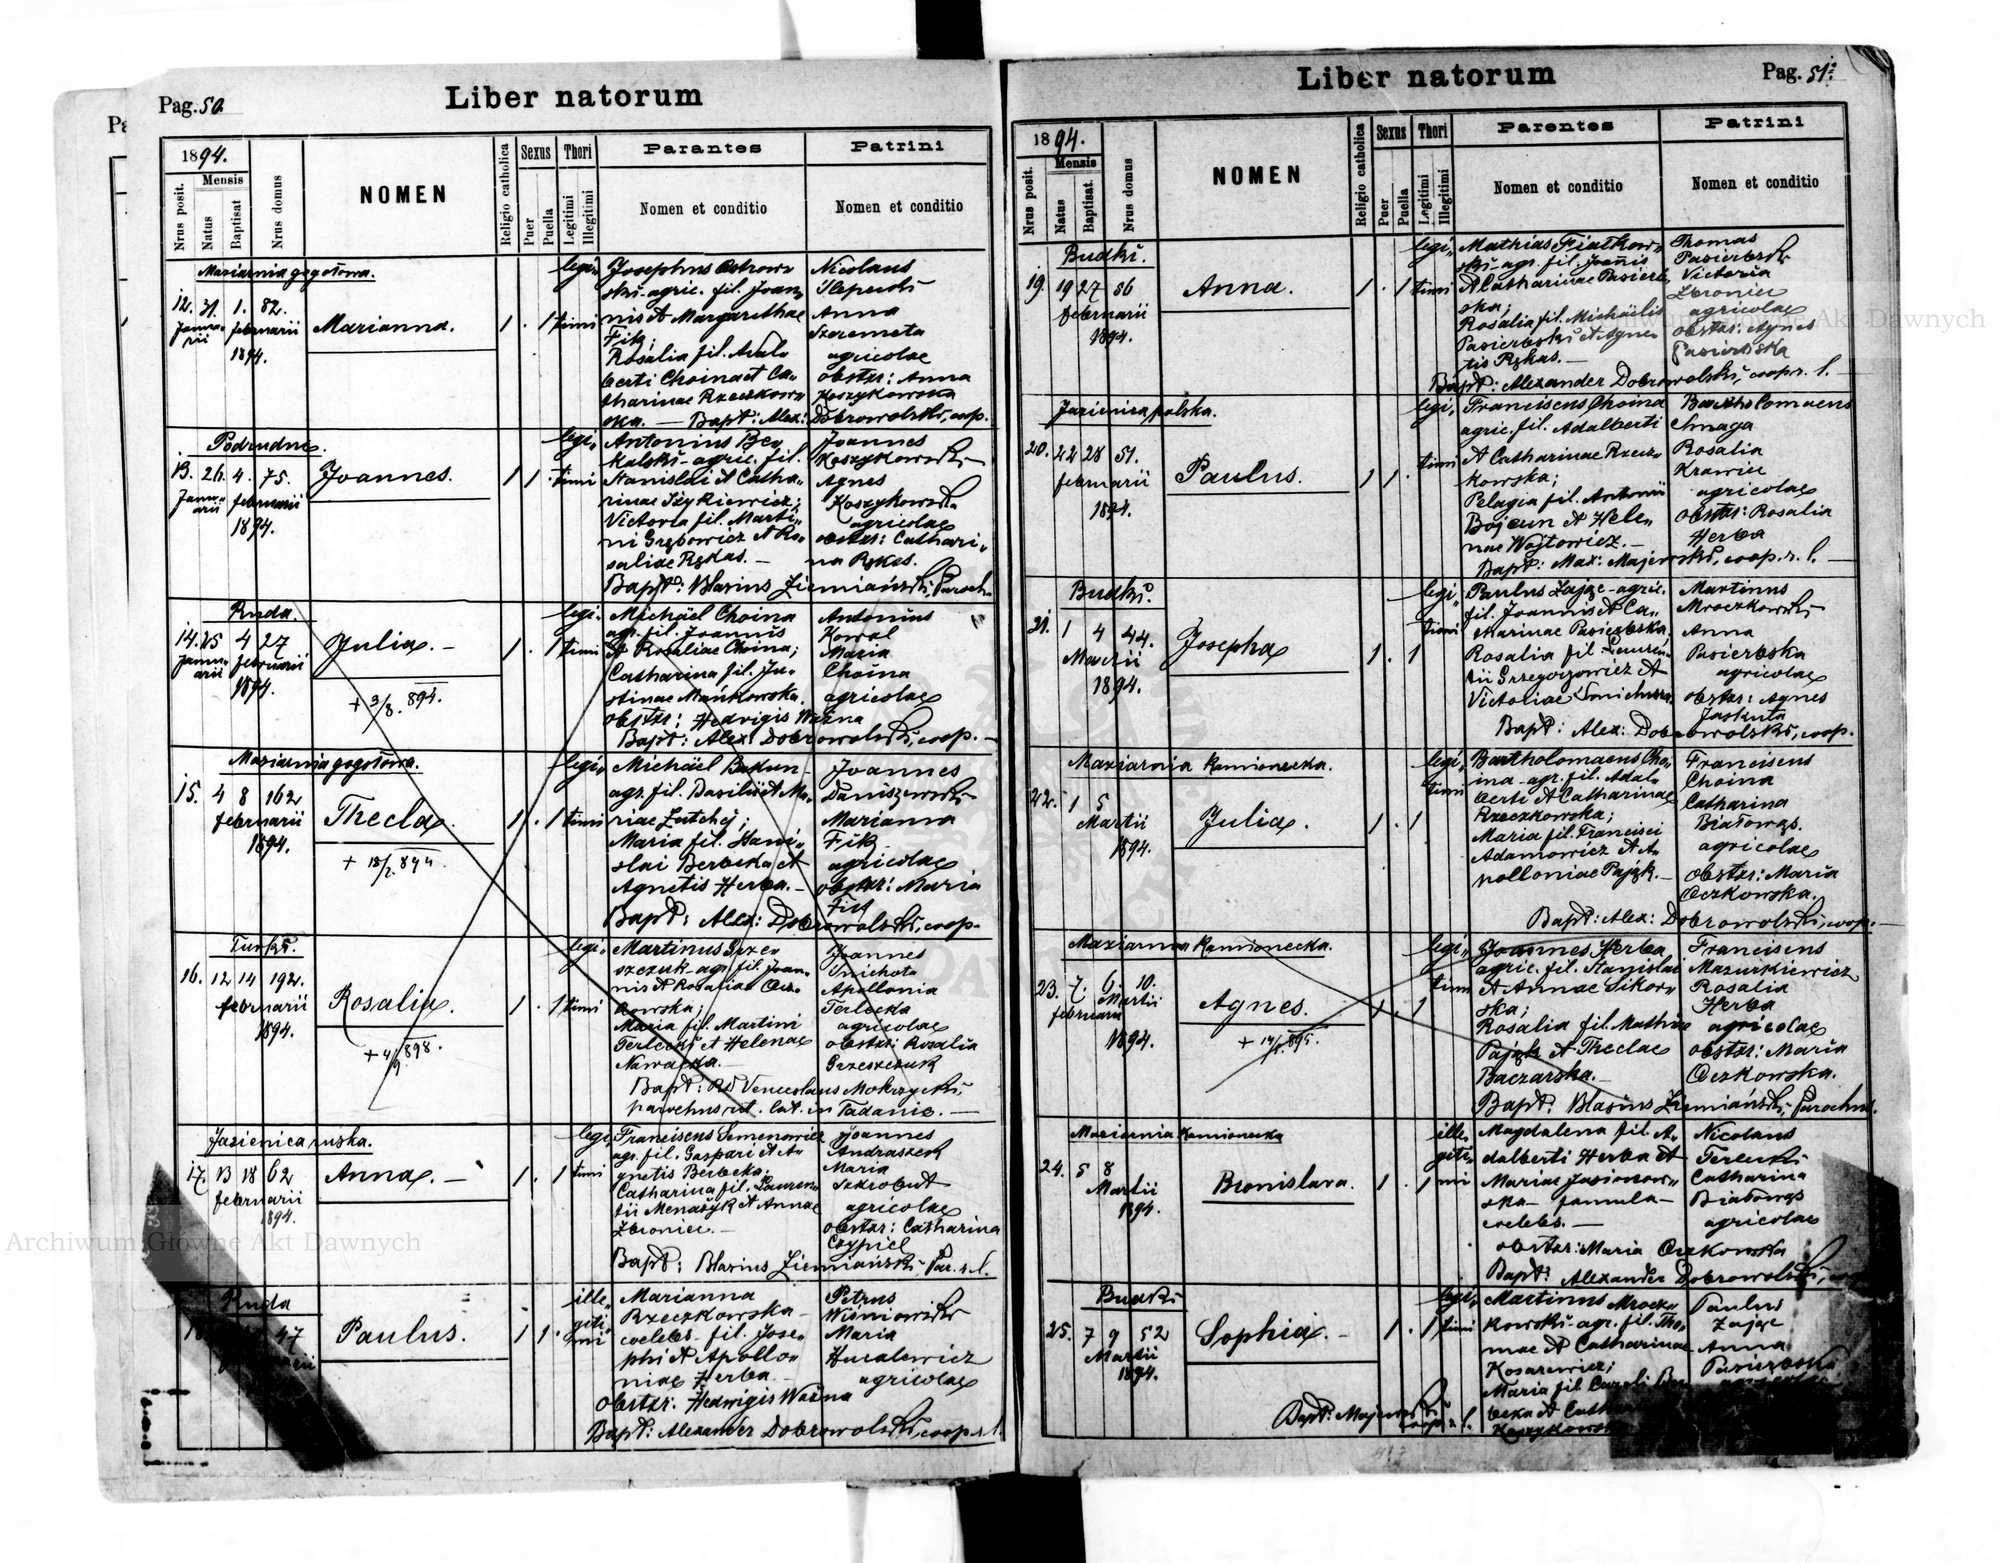 Pag. 50.
Liber natorum
1894.
Nrus posit.
Mensis
Natus
Baptisat
Nrus domus
NOMEN
Religio catholica
Sexus
Puer
Puella
Thori
Legitimi
Illegitimi
Parantes
Nomen et conditio
Patrini
Nomen et conditio
Maziarnia gogołowa.
12. 31. 1. 82.
Januarii februarii
1894.
Marianna.
1 . 1
legi„
timi
Josephus Ostrow„
ski - agric. fil. Joan„
nis et Margarethae
Fik;
Rosalia fil. Adal„
berti Choina et Ca„
tharinae Rzeczkow„
ska. — Bapt: Alex: Dobrowolski, coop.
Nicolaus
Anna
Szeremeta
agricolae
obstr: Anna
Koszykowska
Podrudne.
13. 26. 4. 75.
Januarii februarii
1894.
Joannes.
1 1 .
legi„
timi
Antonius Ber„
kalski - agric. fil.
Stanislai et Catha„
rinae
Victoria fil. Marti„
ni Grębowicz et Ro„
saliae Rękas. —
Bapt: Blasius Ziemiański, Paroch.
Joannes
Koszykowski
Agnes
Koszykowska
agricolae
obstr: Cathari„
na Rękas.
Ruda.
14. 25 4 27
Januarii februarii
1894.
Julia. -
+ 3/8. 894.
1 . 1
legi„
timi
Michaël Choina
agr. fil. Joannis
et Rosaliae Choina;
Catharina fil. Ju„
stinae Mańkowska.
obstr: Hedvigis Ważna
Bapt: Alex: Dobrowolski, coop. -
Antonius
Kowal
Maria
Choina
agricolae
Maziarnia gogołowa.
15. 4 8 162
februarii
1894.
Thecla.
+ 18/2. 894.
1 . 1
legi„
timi
Michaël Bakun -
agr. fil. Basilii et Ma„
riae
Maria fil. Stani„
slai Berbeka et
Agnetis Herba. -
Bapt: Alex: Dobrowolski, coop.
Joannes
Daniszewski
Marianna
Fik
agricolae
obstr: Maria
Fik
Turki.
16. 12 14 192.
februarii
1894.
Rosalia.
+ 4/9. 898.
1 . 1
legi„
timi
Martinus Grze„
szczuk - agr. fil. Joan„
nis et Rosaliae Ocz„
kowska;
Maria fil. Martini
Terlecki et Helenae
Nowacka. —
Bapt: Venceslaus Mokrzycki,
parochus rit. lat. in Tadanie. —
Joannes
Smichota
Apollonia
Terlecka
agricolae
obstr: Rosalia
Grzeszczuk
Jasienica ruska.
17. 13 18 62
februarii
1894.
Anna. —
1 . 1
legi„
timi
Franciscus Semenowicz
agr. fil. Gaspari et A„
gnetis Berbeka;
Catharina fil. Lauren„
tii et Annae
Zbroniec. —
Bapt: Blasius Ziemiański, Par. r. l.
Joannes
Andraszek
Maria
Szkrobut
agricolae
obstr: Catharina
Czypiel
Ruda
47
Paulus.
1 1 .
ille„
giti„
mi
Marianna
Rzeczkowska -
coelebs - fil. Jose„
phi et Apollo„
niae Herba. -
obstr: Hedwigis Ważna
Bapt: Alexander Dobrowolski, coop. r. l.
Petrus
Wiśniowski
Maria
Hucalewicz
agricolae
Pag. 51.
Liber natorum
1894.
Nrus posit.
Mensis
Natus
Baptisat.
Nrus domus
NOMEN
Religio catholica
Sexus
Puer
Puella
Thori
Legitimi
Illegitimi
Parentes
Nomen et conditio
Patrini
Nomen et conditio
Budki.
19. 19 27 56
februarii
1894.
Anna.
1 . 1
legi„
timi
Mathias Fiałkow„
ski - agr. fil. Joannis
et Catharinae Pasierb„
ska;
Rosalia fil. Michäilis
Pasierbski et Agne„
tis Rękas. —
Bapt: Alexander Dobrowolski, coop. r. l. —
Thomas
Pasierbski
Victoria
Zbroniec
agricolae
obstr: Agnes
Pasierbska
Jasienica polska.
20. 22 28 51.
februarii
1894.
Paulus.
1 1 .
legi„
timi
Franciscus Choina
agric. fil. Adalberti
et Catharinae Rzecz„
kowska;
Pelagia fil. Antonii
Bojcun et Hele„
nae Wojtowicz. —
Bapt: Max: Majewski, coop. r. l. —
Bartholomaeus
Chmaga
Rosalia
Krawiec
agricolae
obstr: Rosalia
Herba
Budki.
21. 1 4 44.
Martii
1894.
Josepha
1 . 1
legi„
timi
Paulus Zając - agric.
fil. Joannis et Ca„
tharinae Pasierbska.
Rosalia fil. Lauren„
tii Grzegorzowicz et
Victoriae
Bapt: Alex: Dobrowolski, coop.
Martinus
Mroczkowski
Anna
Pasierbska
agricolae
obstr: Agnes
Jaskuła
Maziarnia Kamionecka.
22. 1 5
Martii
1894.
Julia.
1 . 1
legi„
timi
Bartholomaeus Cho„
ina - agr. fil. Adal„
berti et Catharinae
Rzeczkowska;
Maria fil. Francisci
Adamowicz et A„
polloniae Pająk. —
Bapt: Alex: Dobrowolski, coop.
Franciscus
Choina
Catharina
Białowąs.
agricolae
obstr: Maria
Oczkowska.
Maziarnia Kamionecka.
23. 7. 6. 10.
februarii Martii
1894.
Agnes.
1 . 1
legi„
timi
Joannes Herba
agric. fil. Stanislai
et Annae Sikor„
ska;
Rosalia fil. Mathiae
Pająk et Theclae
Baczarska. —
Bapt: Blasius Ziemiański, Parochus.
Franciscus
Mazurkiewicz
Rosalia
Herba
agricolae
obstr: Maria
Oczkowska.
Maziarnia Kamionecka
24. 5 8
Martii
1894.
Bronislava.
1 . 1
ille„
giti„
mi
Magdalena fil. A„
dalberti Herba et
Mariae Jasionow„
ska - famula -
coelebs. —
obstr: Maria Oczkowska
Bapt: Alexander Dobrowolski,
Nicolaus
Terlecki
Catharina
Białowąs
agricolae
Budki
25. 7 9 52
Martii
1894.
Sophia. -
1 . 1
legi„
timi
Martinus Mrocz„
kowski - agr. fil. Tho„
mae et Catharinae
Kosarewicz;
Maria fil. Caroli Ber„
beka et
Koszykowska
Bapt: Majewski
coop. r. l.
Paulus
Zając
Anna
Pasierbska
Archiwum Główne Akt Dawnych
Archiwum Główne Akt Dawnych